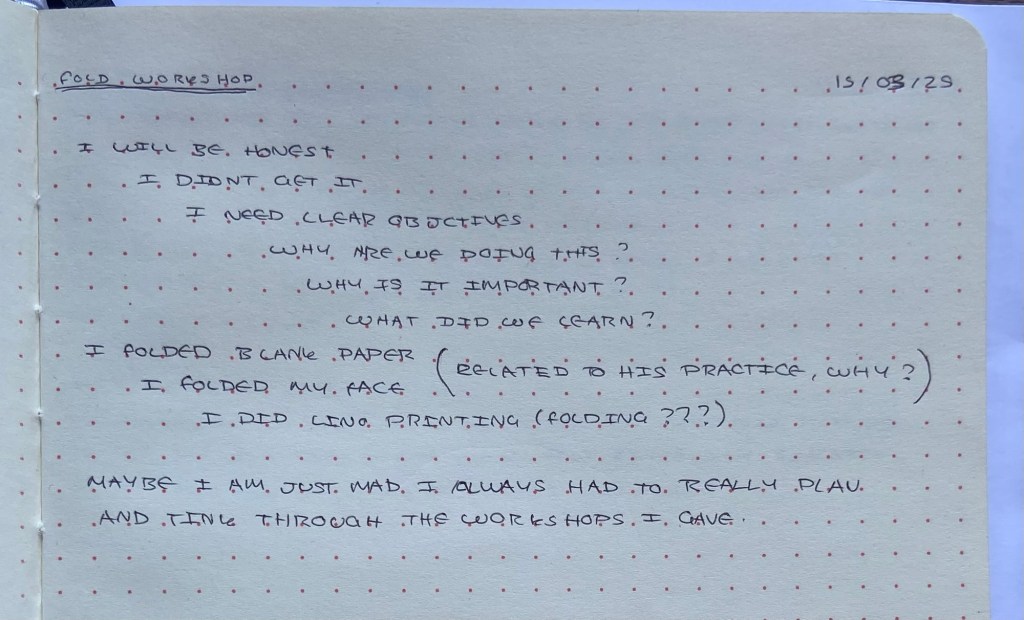 FOLD WORKSHOP 15/03/25
I WILL BE HONEST
I DIDNT GET IT
I NEED CLEAR OBJCTIVES
WHY ARE WE DOING THIS?
WHY IS IT IMPORTANT?
WHAT DID WE LEARN?
I FOLDED BLANK PAPER
(RELATED TO HIS PRACTICE, WHY?)
I FOLDED MY FACE
I DID LINO PRINTING (FOLDING ???)
MAYBE I AM JUST MAD. I ALWAYS HAD TO REALLY PLAN
AND TINK THROUGH THE WORKSHOPS I GAVE.